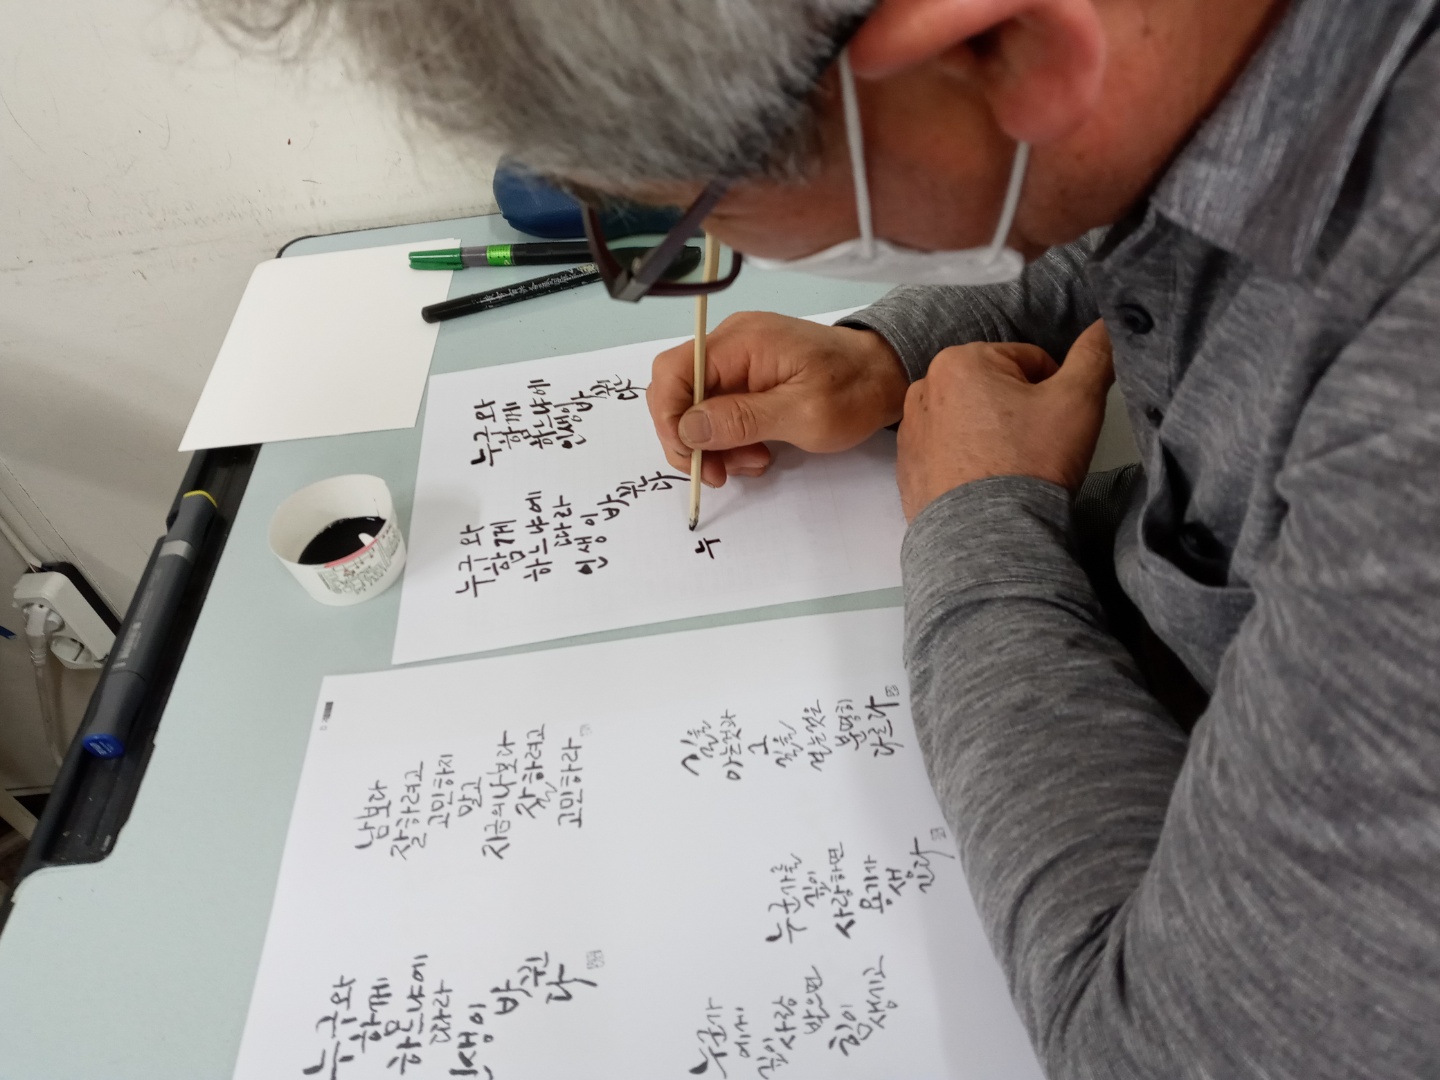 누구와
함께
하느냐에
인생이 바
뀐다
누구와
함께
하느냐에
따라
인생이
바
뀐다
누
남보다
잘하려고
고민하지
말고
지금의 나보다
잘하려고
고민하라
일을
아는것과
그
일을
하는것은
분명히
다르다
누구와
함께
하느냐에
따라
인생이
바
뀐다
누군가를
깊이
사랑하면
용기가
생
긴다
누군가
에게
깊이 사랑
받으면
힘이
생기고